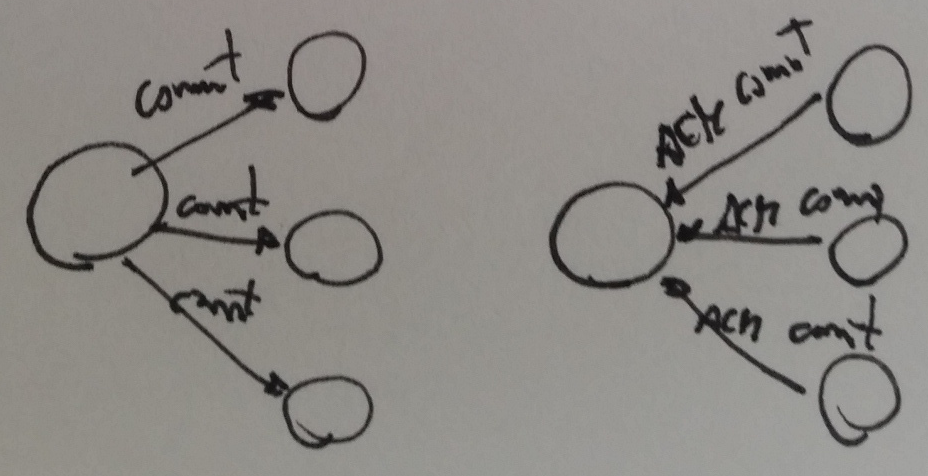 commt
commt
commt
ACK commt
ACK comm
ACK commt